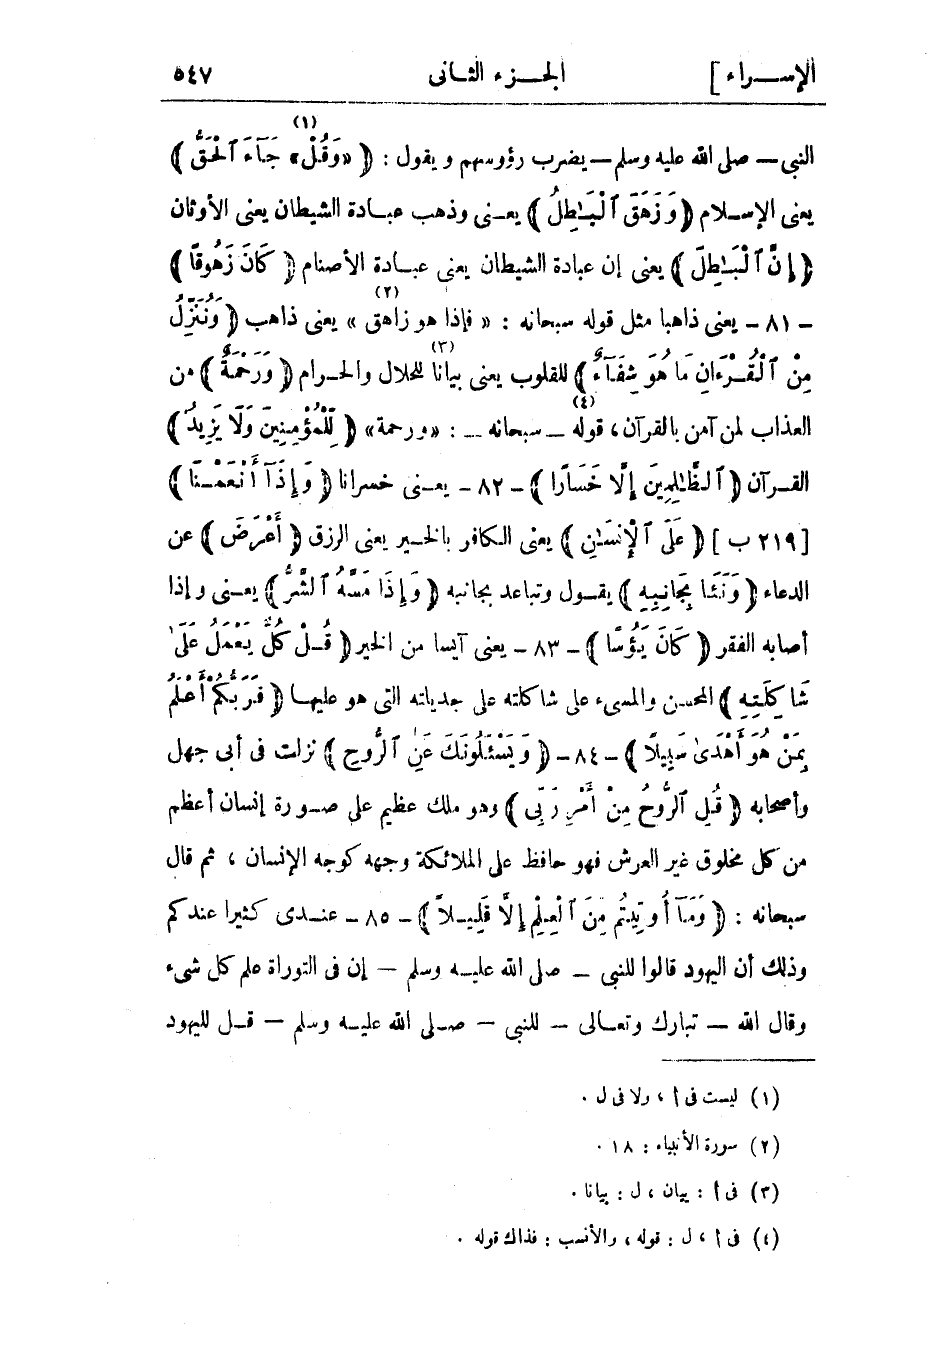 الإســراء ]
الجــزء الثانى
٥٤٧
(١)
النبى — صلى الله عليه وسلم — يضرب رؤوسهم ويقول : ﴿ «وَقُلْ» جَآءَ ٱلْحَقُّ ﴾
يعنى الإسلام ﴿ وَزَهَقَ ٱلْبَـٰطِلُ ﴾ يعنى وذهب عبادة الشيطان يعنى الأوثان
﴿ إِنَّ ٱلْبَـٰطِلَ ﴾ يعنى إن عبادة الشيطان يعنى عبادة الأصنام ﴿ كَانَ زَهُوقًا ﴾
(٢)
– ٨١ – يعنى ذاهبا مثل قوله سبحانه : « فإذا هو زاهق » يعنى ذاهب ﴿ وَنُنَزِّلُ
(٣)
مِنَ ٱلْقُرْءَانِ مَا هُوَ شِفَآءٌ ﴾ للقلوب يعنى بيانا للحلال والحرام ﴿ وَرَحْمَةٌ ﴾ من
(٤)
العذاب لمن آمن بالقرآن ، قوله – سبحانه – : «ورحمة» ﴿ لِّلْمُؤْمِنِينَ وَلَا يَزِيدُ ﴾
القرآن ﴿ ٱلظَّـٰلِمِينَ إِلَّا خَسَارًا ﴾ – ٨٢ – يعنى خسرانا ﴿ وَإِذَآ أَنْعَمْنَا ﴾
[ ٢١٩ ب ] ﴿ عَلَى ٱلْإِنسَـٰنِ ﴾ يعنى الكافر بالخير يعنى الرزق ﴿ أَعْرَضَ ﴾ عن
الدعاء ﴿ وَنَـَٔا بِجَانِبِهِ ﴾ يقول وتباعد بجانبه ﴿ وَإِذَا مَسَّهُ ٱلشَّرُّ ﴾ يعنى وإذا
أصابه الفقر ﴿ كَانَ يَـُٔوسًا ﴾ – ٨٣ – يعنى آيسا من الخير ﴿ قُلْ كُلٌّ يَعْمَلُ عَلَىٰ
شَاكِلَتِهِ ﴾ المحسن والمسىء على شاكلته على جديلته التى هو عليها ﴿ فَرَبُّكُمْ أَعْلَمُ
بِمَنْ هُوَ أَهْدَىٰ سَبِيلًا ﴾ – ٨٤ – ﴿ وَيَسْـَٔلُونَكَ عَنِ ٱلرُّوحِ ﴾ نزلت فى أبى جهل
وأصحابه ﴿ قُلِ ٱلرُّوحُ مِنْ أَمْرِ رَبِّى ﴾ وهو ملك عظيم على صورة إنسان أعظم
من كل مخلوق غير العرش فهو حافظ على الملائكة وجهه كوجه الإنسان ، ثم قال
سبحانه : ﴿ وَمَآ أُوتِيتُم مِّنَ ٱلْعِلْمِ إِلَّا قَلِيلًا ﴾ – ٨٥ – عندى كثيرا عندكم
وذلك أن اليهود قالوا للنبى – صلى الله عليه وسلم – إن فى التوراة علم كل شىء
وقال الله – تبارك وتعالى – للنبى – صلى الله عليه وسلم – قل لليهود
(١) ليست فى أ ، ولا فى ل .
(٢) سورة الأنبياء : ١٨ .
(٣) فى أ : بيان ، ل : بيانا .
(٤) فى أ ، ل : قوله ، والأنسب : فذاك قوله .